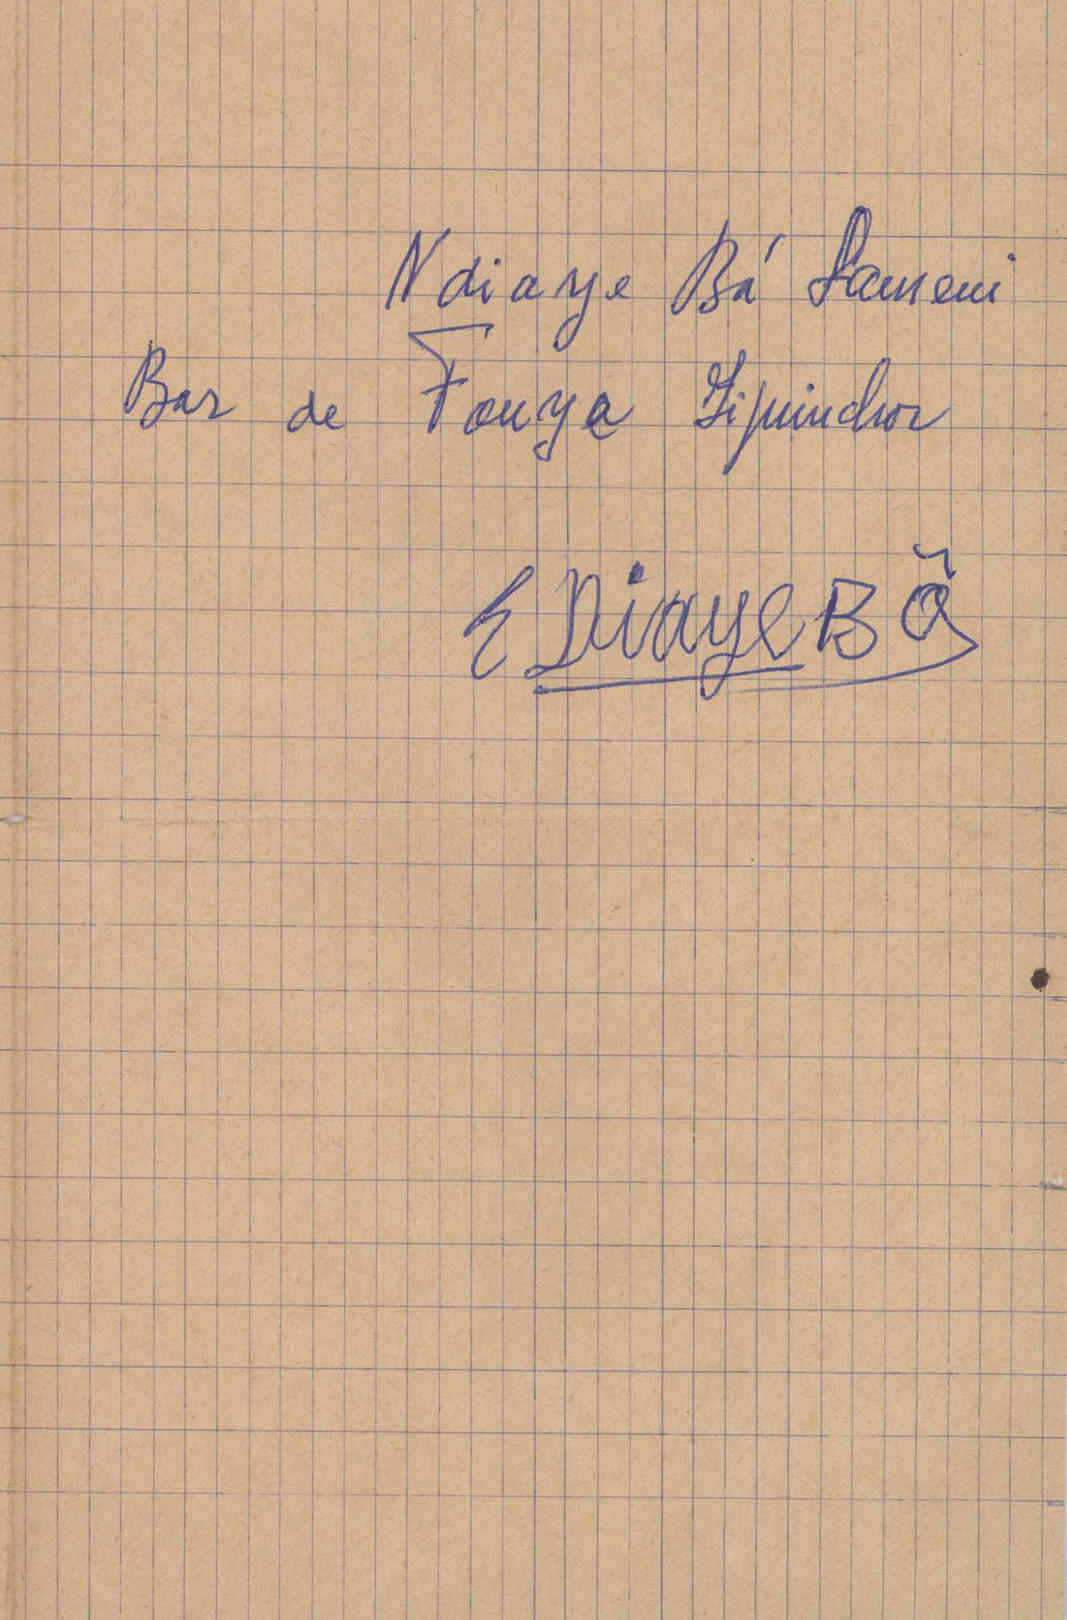 Ndiaye Bá Lanseni
Bar de Fonya Zipuinchor
E Diaye Bã